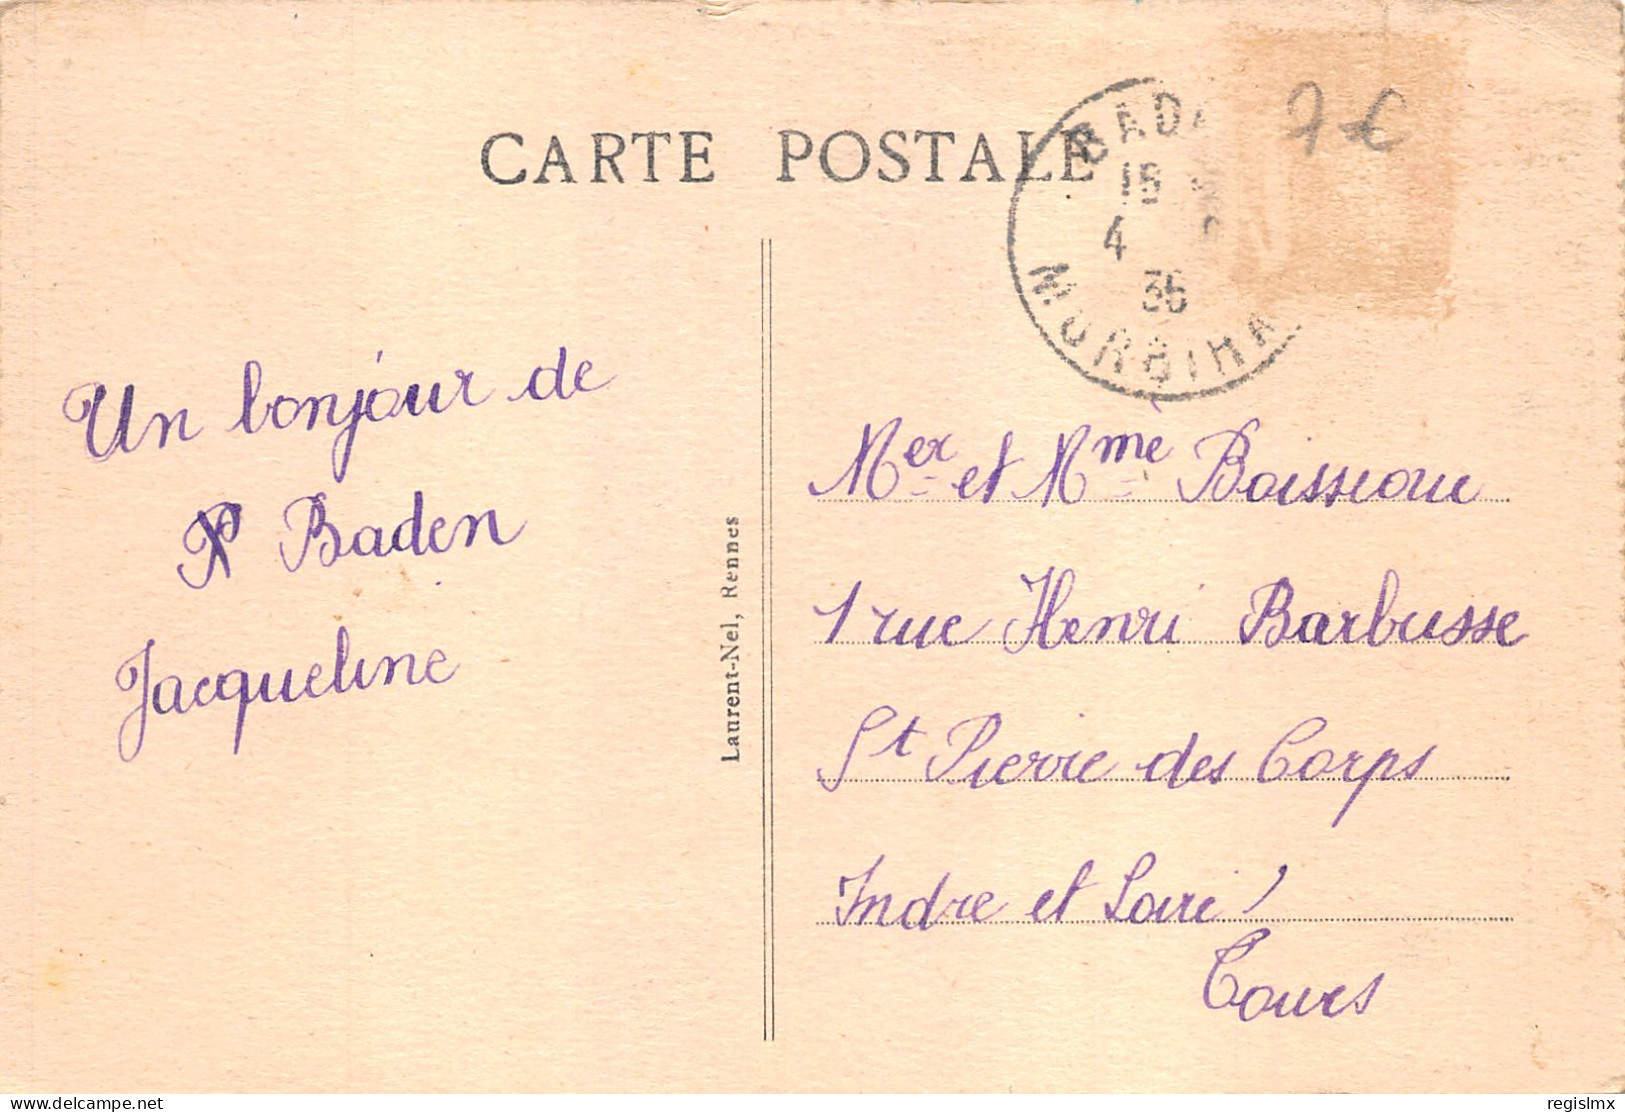 CARTE POSTALE
BADE
15
4
36
MORBIHA
7 €
Un bonjour de
Baden
Jacqueline
Laurent-Nel, Rennes
Mer et Mme Boissione
1 rue Henri Barbusse
St Pierre des Corps
Indre et Loire
Tours
www.delcampe.net
regislmx